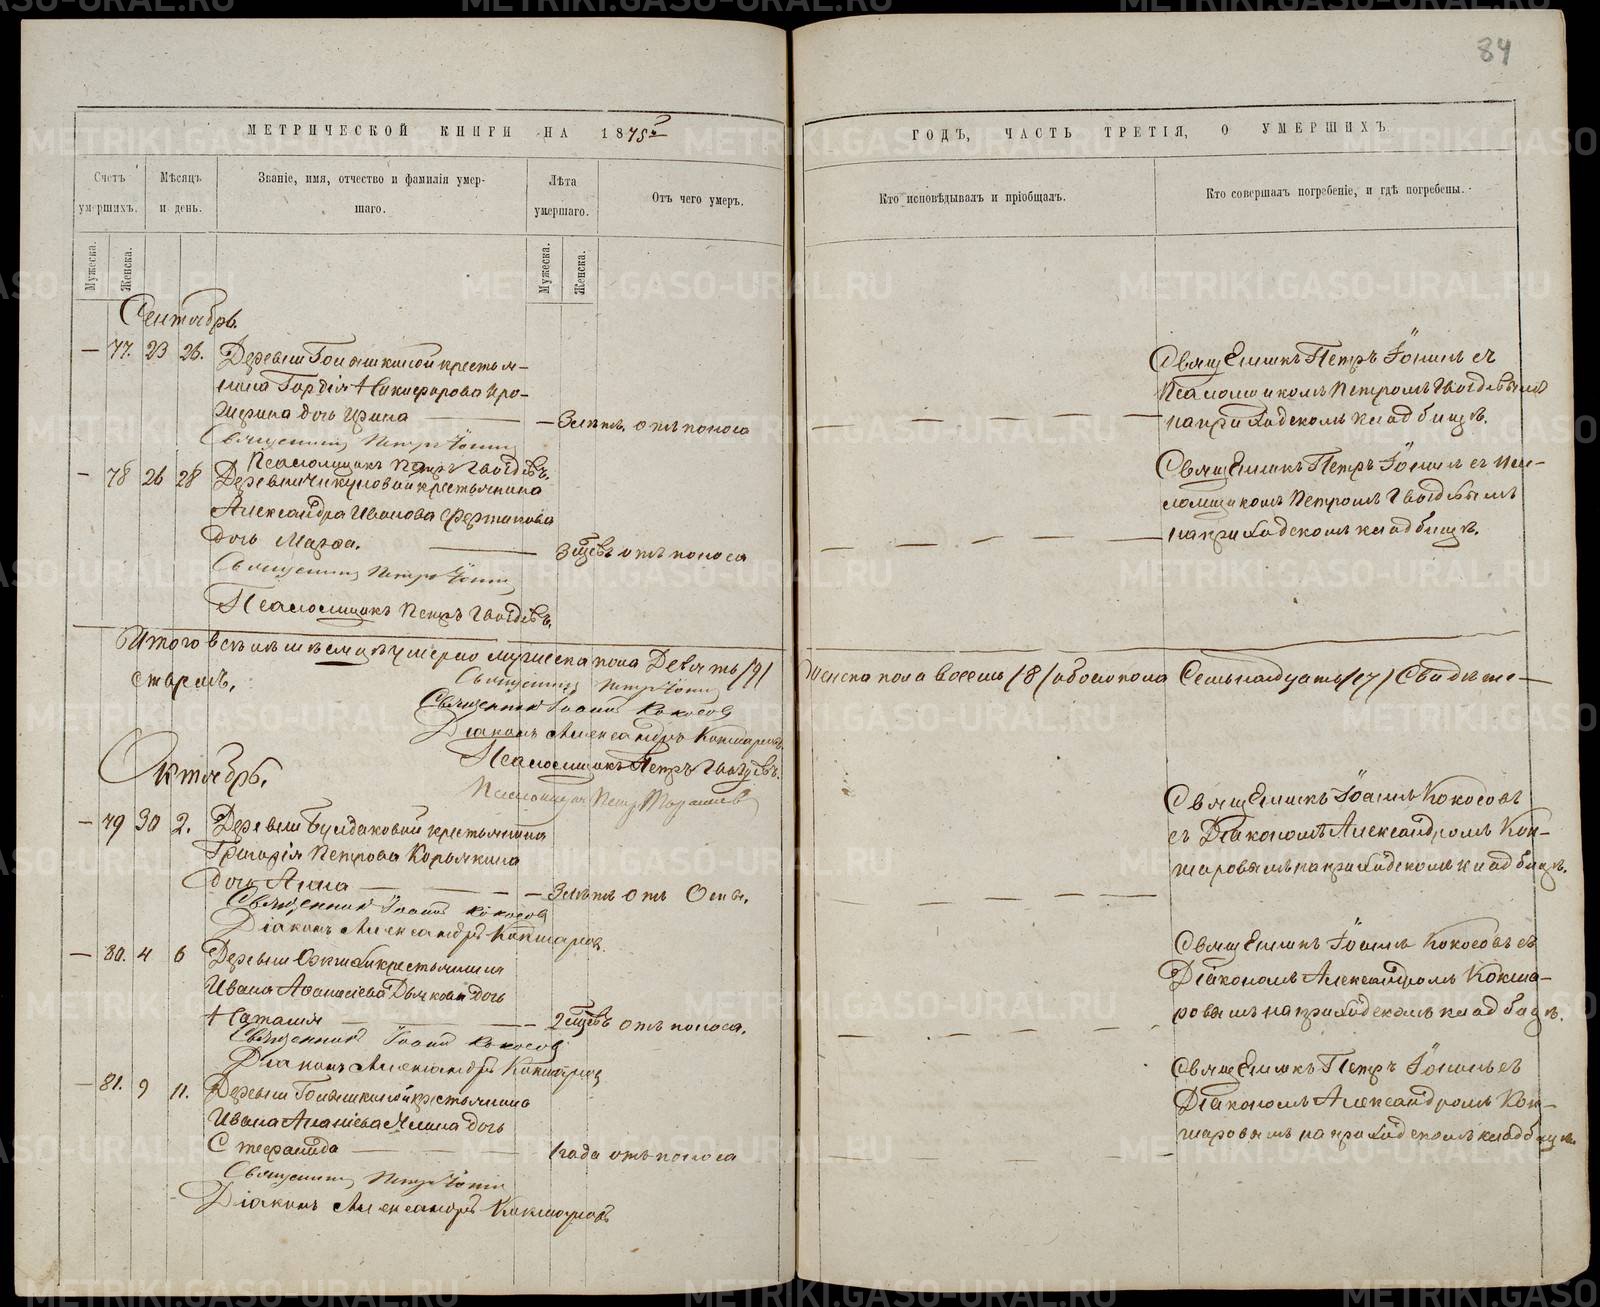 84
МЕТРИЧЕСКОЙ КНИГИ НА 1875й
ГОДЪ, ЧАСТЬ ТРЕТІЯ, О УМЕРШИХЪ
Счетъ умершихъ.
Мѣсяцъ и день.
Званіе, имя, отчество и фамилія умершаго.
Лѣта умершаго.
Отъ чего умеръ.
Кто исповѣдывалъ и пріобщалъ.
Кто совершалъ погребеніе, и гдѣ погребены.
Мужеска.
Женска.
Мужеска.
Женска.
Сентябрь.
— 77. 23 26. Деревни крестья-
нина Гордія Никифорова
дочь Ирина — 3 лѣтъ. отъ поноса
Священникъ Петръ
Псаломщикъ Петръ Гвоздевъ.
Священникъ Петръ съ
Псаломщикомъ Петромъ Гвоздевымъ
на приходскомъ кладбищѣ.
— 78 26 28 Деревни крестьянина
Александра Иванова
дочь Марѳа. — 3 мцевъ отъ поноса
Священникъ Петръ
Псаломщикъ Петръ Гвоздевъ.
Священникъ Петръ съ пса-
ломщикомъ Петромъ Гвоздевымъ
на приходскомъ кладбищѣ.
Итого въ семъ мцѣ умерло мужеска пола Девять /9/ женска пола восемь /8/ обоего пола Семьнадцать /17/ Свидѣте-
Священникъ Петръ
Священникъ Іоаннъ Кокосовъ
Діаконъ Александръ Кокшаровъ
Псаломщикъ Петръ Гвоздевъ.
Псаломщикъ Петръ
Октябрь.
— 79 30 2. Деревни Бунъаковой крестьянина
Григорія Петрова Корякина
дочь Анна — 3 лѣтъ отъ Оспы.
Священникъ Іоаннъ Кокосовъ
Діаконъ Александръ Кокшаровъ.
Священникъ Іоаннъ Кокосовъ
съ Діакономъ Александромъ Кок-
шаровымъ на приходскомъ кладбищѣ.
— 80. 4 6 Деревни крестьянина
Ивана Аѳанасіева Дьякова дочь
Наталія — 2 мцевъ отъ поноса.
Священникъ Іоаннъ Кокосовъ
Діаконъ Александръ Кокшаровъ
Священникъ Іоаннъ Кокосовъ съ
Діакономъ Александромъ Кокша-
ровымъ на приходскомъ кладбищѣ.
— 81. 9 11. Деревни крестьянина
Ивана дочь
Стефанида — 1 года отъ поноса
Священникъ Петръ
Діаконъ Александръ Кокшаровъ
Священникъ Петръ съ
Діакономъ Александромъ Кок-
шаровымъ на приходскомъ кладбищѣ.
METRIKI.GASO-URAL.RU